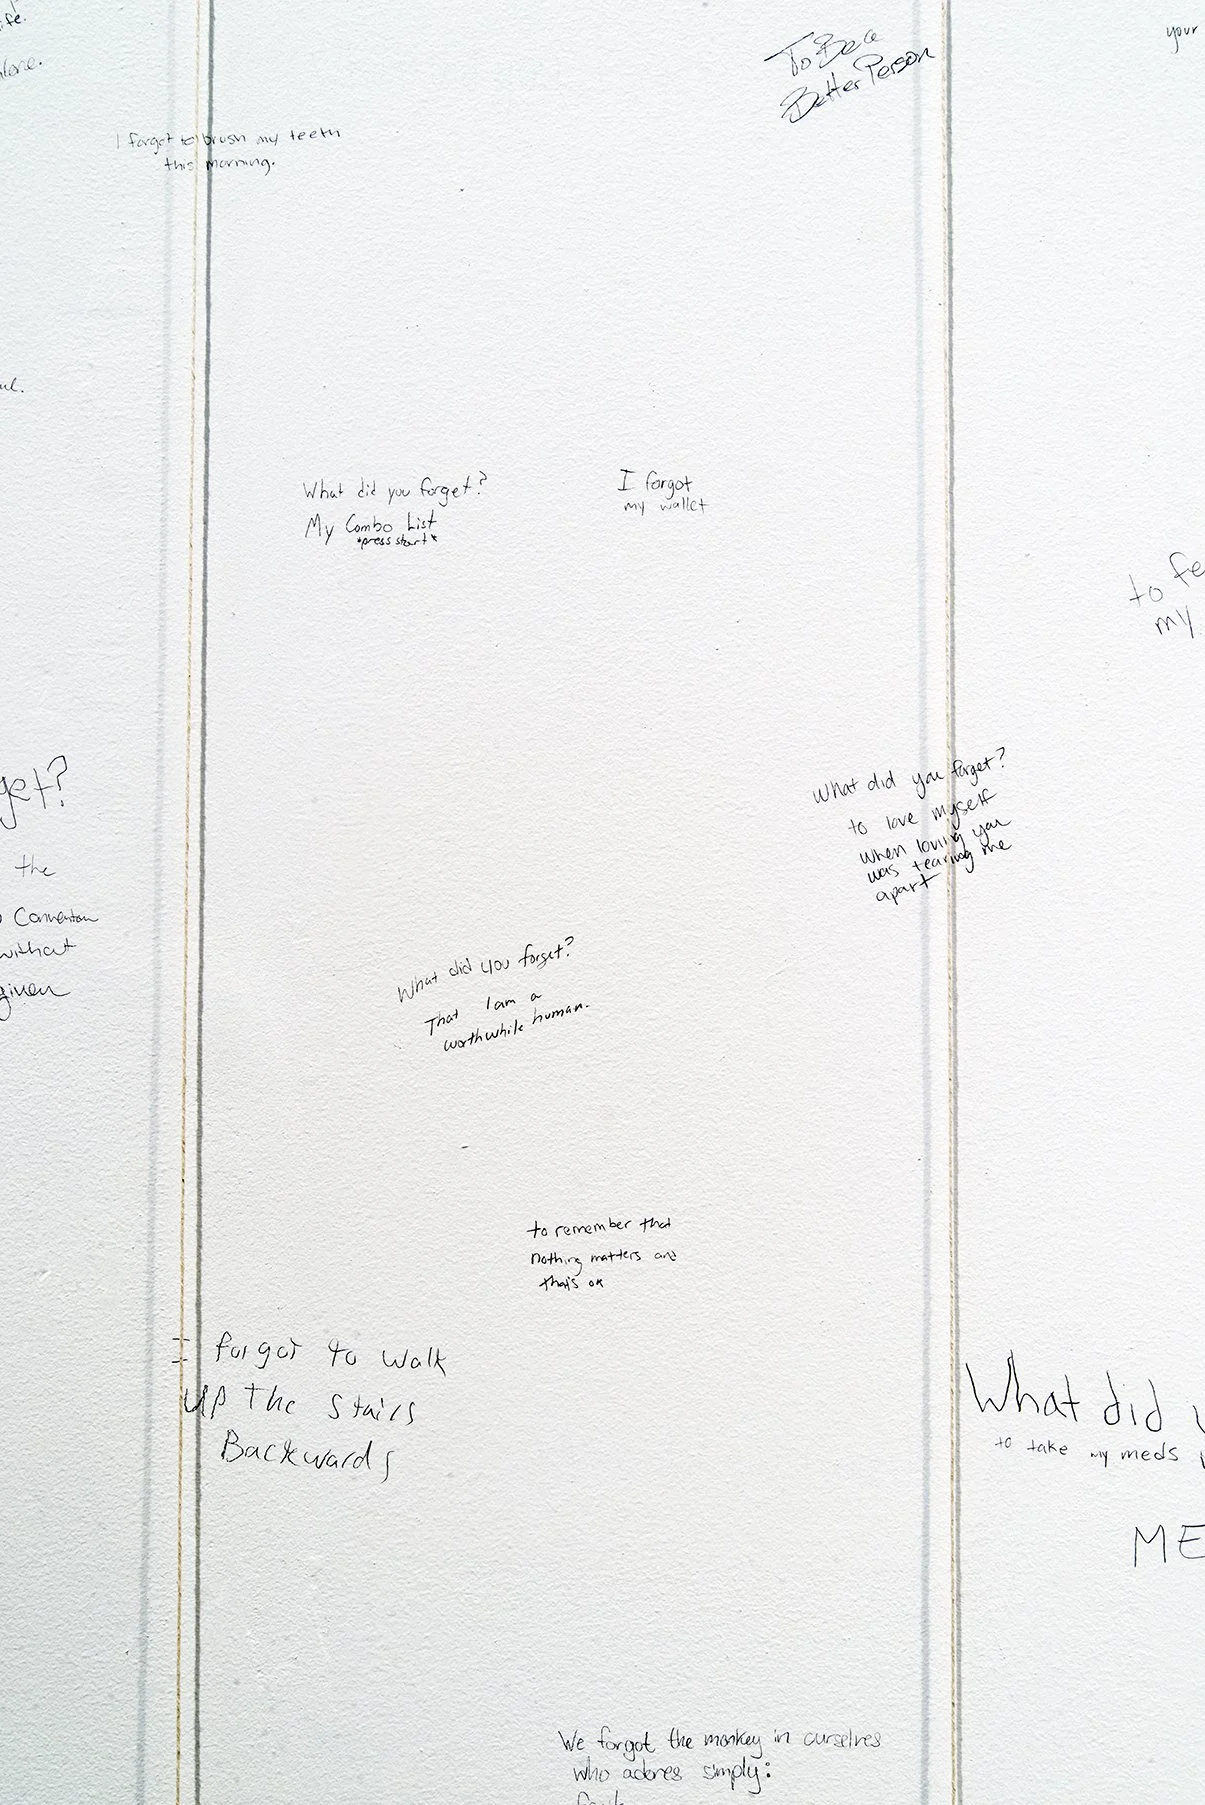 To Be a
Better Person
your
I forgot to brush my teeth
this morning.
What did you forget?
My Combo List
*press start*
I forgot
my wallet
to fe
my
get?
the
Convention
without
given
What did you forget?
to love myself
when loving you
was tearing me
apart
What did you forget?
That I am a
worthwhile human.
to remember that
nothing matters and
that's ok
I forgot to walk
up the stairs
Backwards
What did
to take my meds
ME
We forgot the monkey in ourselves
who adores simply: